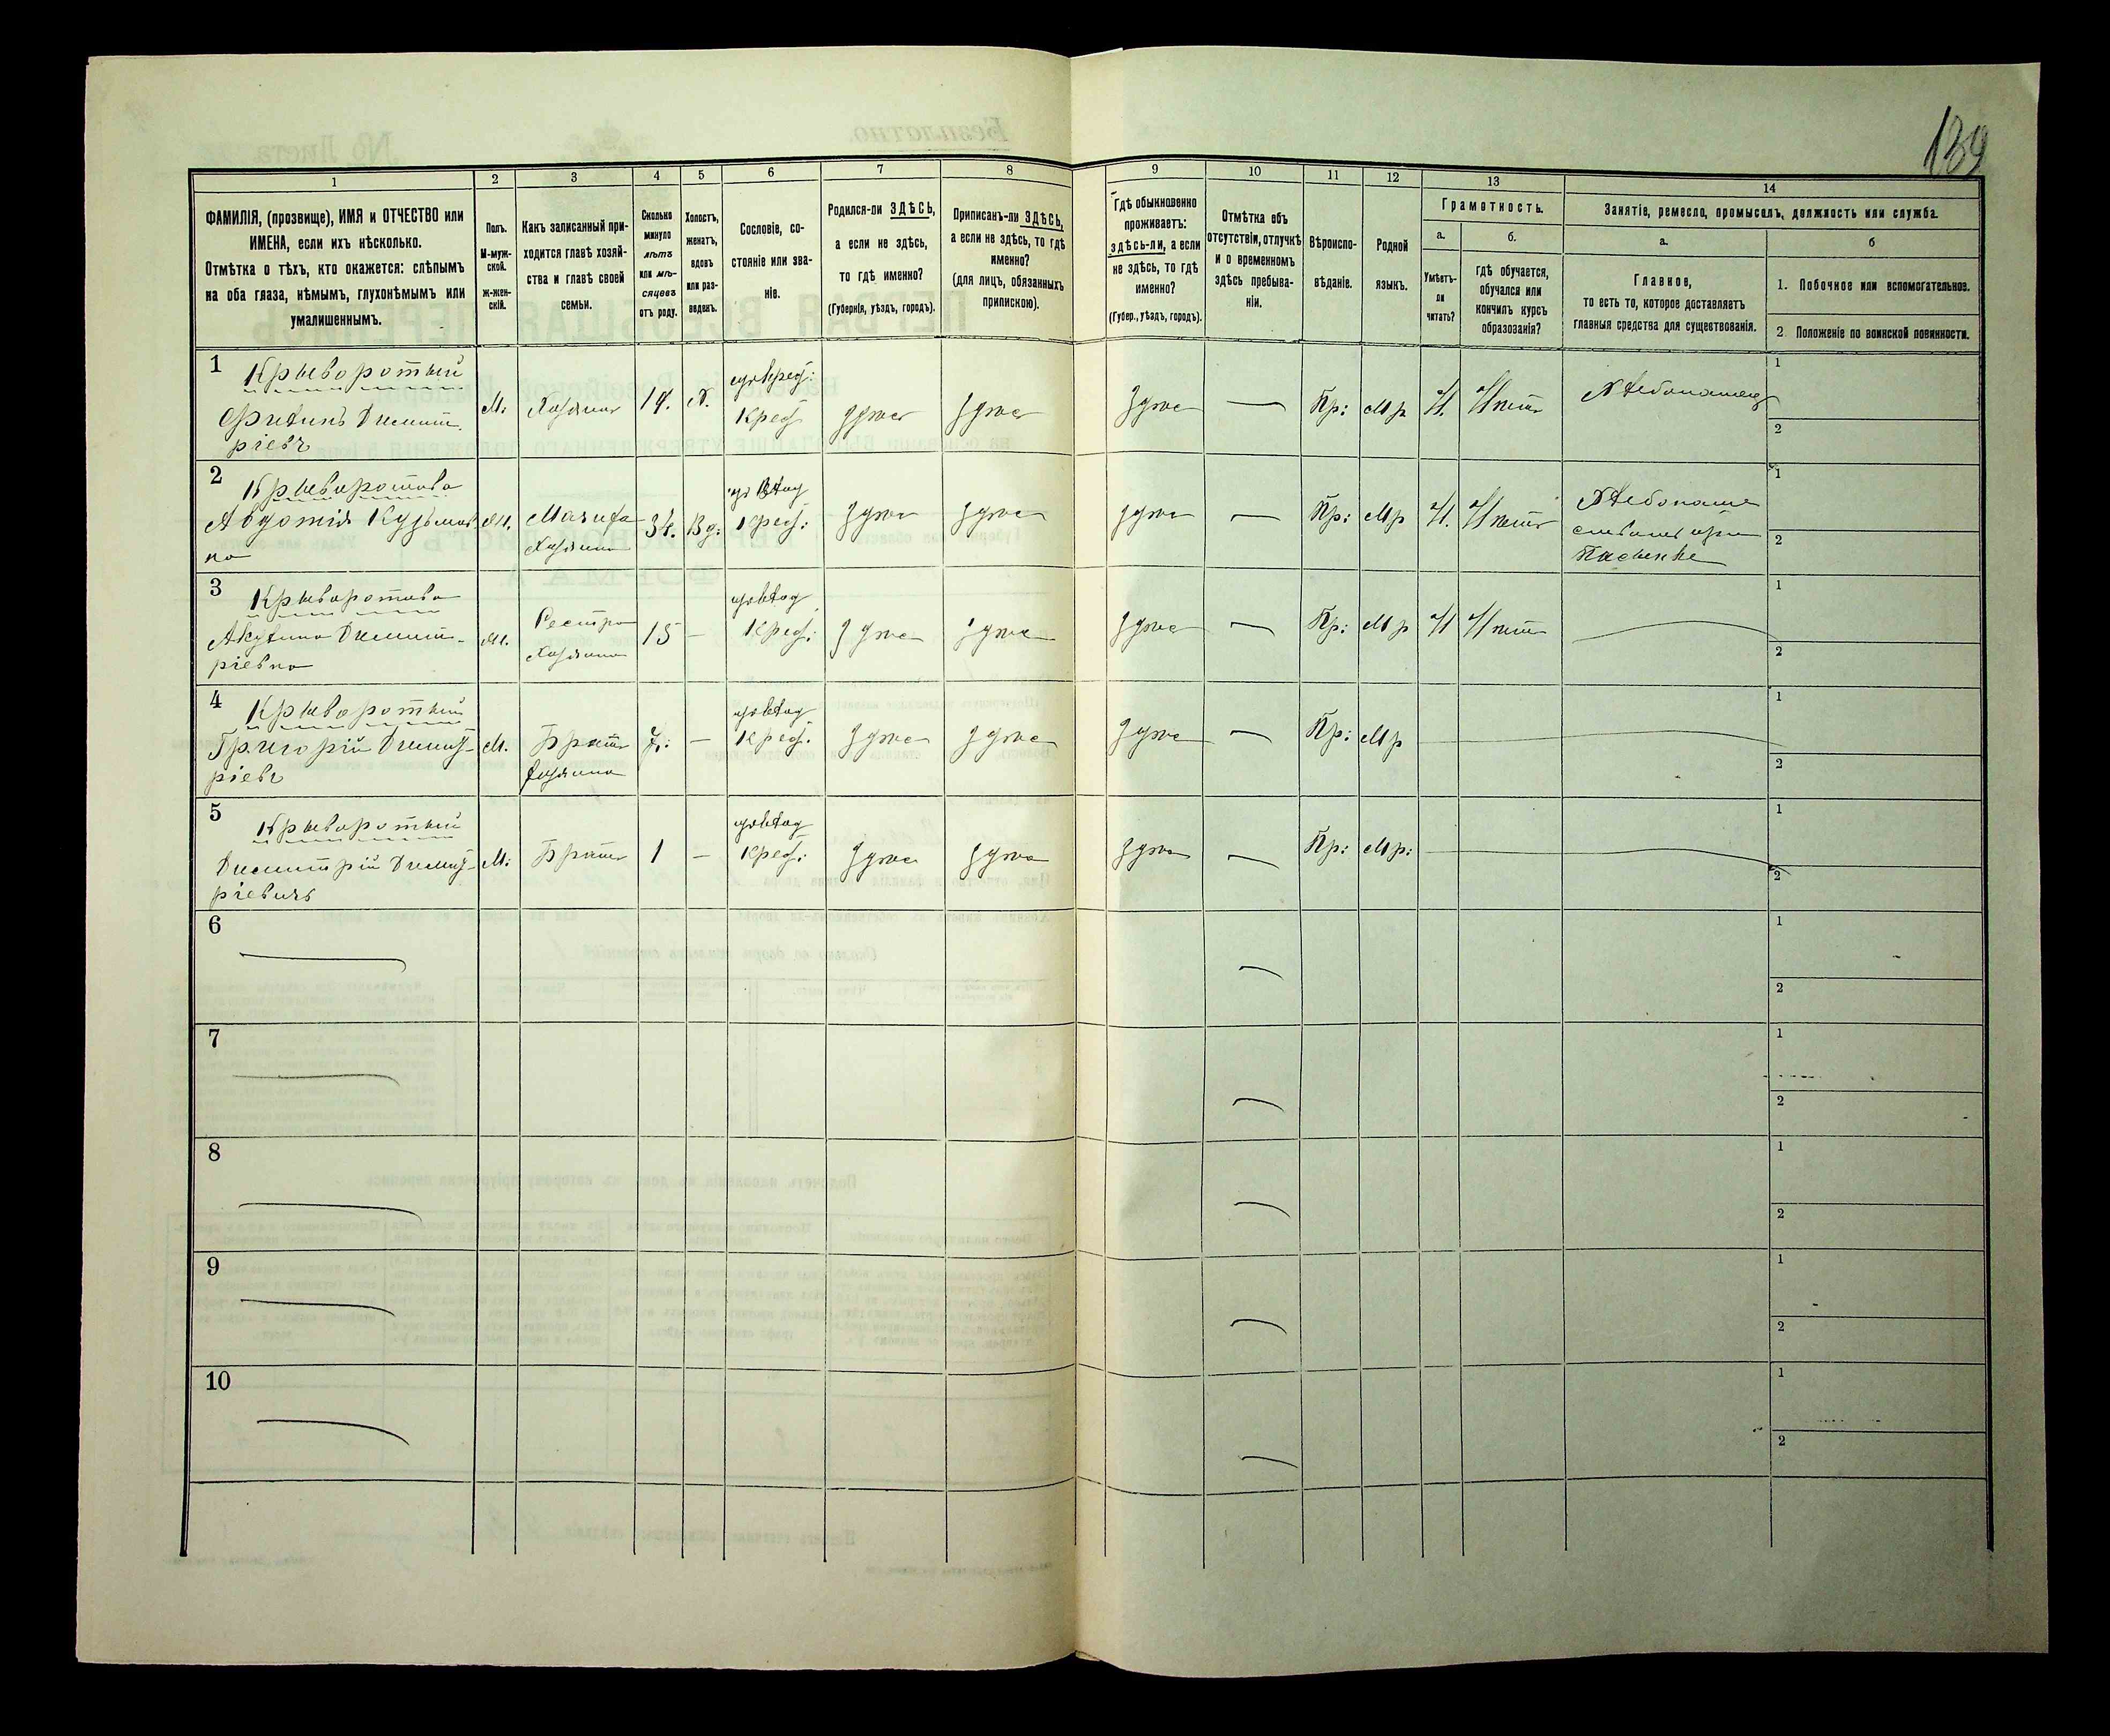 139
1
2
3
4
5
6
7
8
9
10
11
12
13
14
ФАМИЛІЯ, (прозвище), ИМЯ и ОТЧЕСТВО или
ИМЕНА, если ихъ нѣсколько.
Отмѣтка о тѣхъ, кто окажется: слѣпымъ
на оба глаза, нѣмымъ, глухонѣмымъ или
умалишеннымъ.
Полъ.
М-муж-
ской.
Ж-жен-
скій.
Какъ записанный при-
ходится главѣ хозяй-
ства и главѣ своей
семьи.
Сколько
минуло
лѣтъ
или мѣ-
сяцевъ
отъ роду.
Холостъ,
женатъ,
вдовъ
или раз-
веденъ.
Сословіе, со-
стояніе или зва-
ніе.
Родился-ли ЗДѢСЬ,
а если не здѣсь,
то гдѣ именно?
(Губернія, уѣздъ, городъ).
Приписанъ-ли ЗДѢСЬ,
а если не здѣсь, то гдѣ
именно?
(для лицъ, обязанныхъ
припискою).
Гдѣ обыкновенно
проживаетъ:
здѣсь-ли, а если
не здѣсь, то гдѣ
именно?
(Губер., уѣздъ, городъ).
Отмѣтка объ
отсутствіи, отлучкѣ
и о временномъ
здѣсь пребыва-
ніи.
Вѣроиспо-
вѣданіе.
Родной
языкъ.
Грамотность.
а.
Умѣетъ-
ли
читать?
б.
гдѣ обучается,
обучался или
кончилъ курсъ
образованія?
Занятіе, ремесло, промыселъ, должность или служба.
а.
Главное,
то есть то, которое доставляетъ
главныя средства для существованія.
б
1. Побочное или вспомогательное.
2. Положеніе по воинской повинности.
1
Крыворотый
Димит
ріевъ
М.
Хозяинъ
19.
Х.
Крес.
Здѣсь
Здѣсь
Здѣсь
Пр:
Мр
Н.
Нѣтъ
Хлебопашец
1
2
2
Крыворотова
Авдотія Кузьмов
на
Мачиха
Хозяина
Вд:
Крес:
Здѣсь
Здѣсь
Здѣсь
Пр:
Мр
Н.
Нѣтъ
Хлебопаше
при
Пасынке
1
2
3
Крыворотова
Акулина Димит-
ріевна
Сестра
Хозяина
15
Крес:
Здѣсь
Здѣсь
Здѣсь
Пр:
Мр
Н
Нѣтъ
1
2
4
Крыворотый
Григорій Димит-
ріевъ
М.
Братъ
Хозяина
7.
Крес.
Здѣсь
Здѣсь
Здѣсь
Пр:
Мр
1
2
5
Крыворотый
Димитрій Димит-
ріевичъ
М:
Братъ
1
Крес:
Здѣсь
Здѣсь
Здѣсь
Пр:
Мр:
1
2
6
1
2
7
1
2
8
1
2
9
1
2
10
1
2